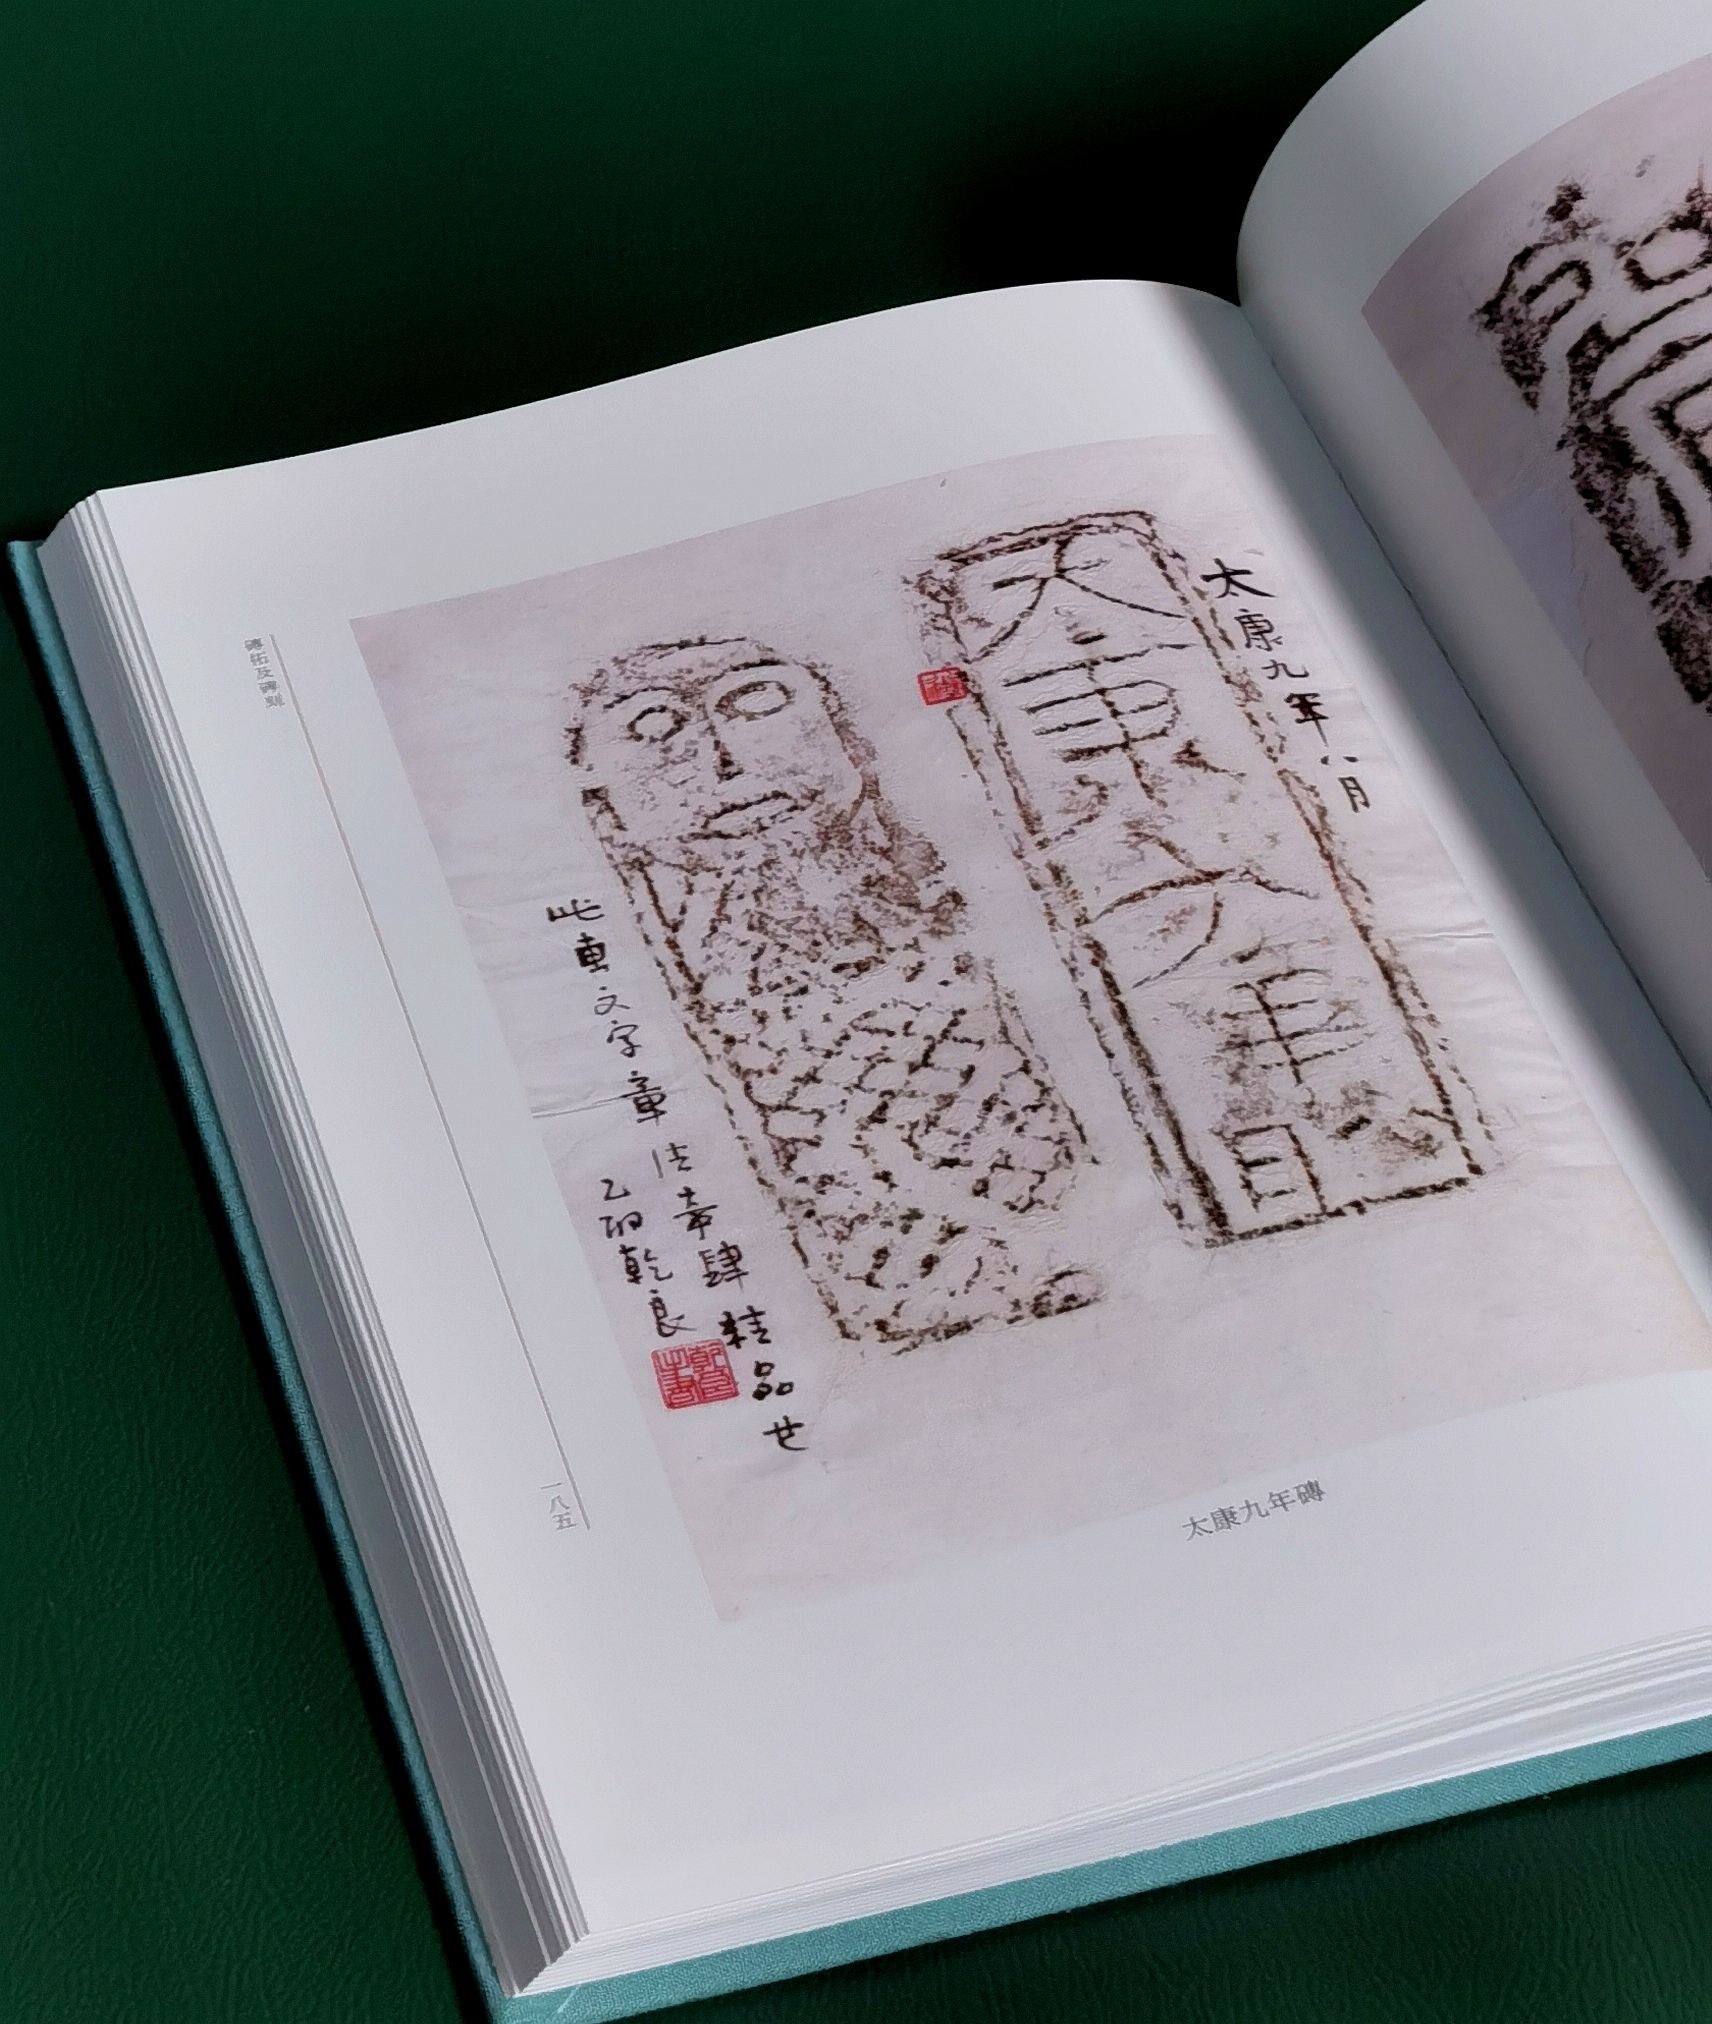 太康九年八月
太康九年八月
此専文字章法奇肆
精品也
乙酉乾良
太康九年磚
磚拓及磚刻
一八五